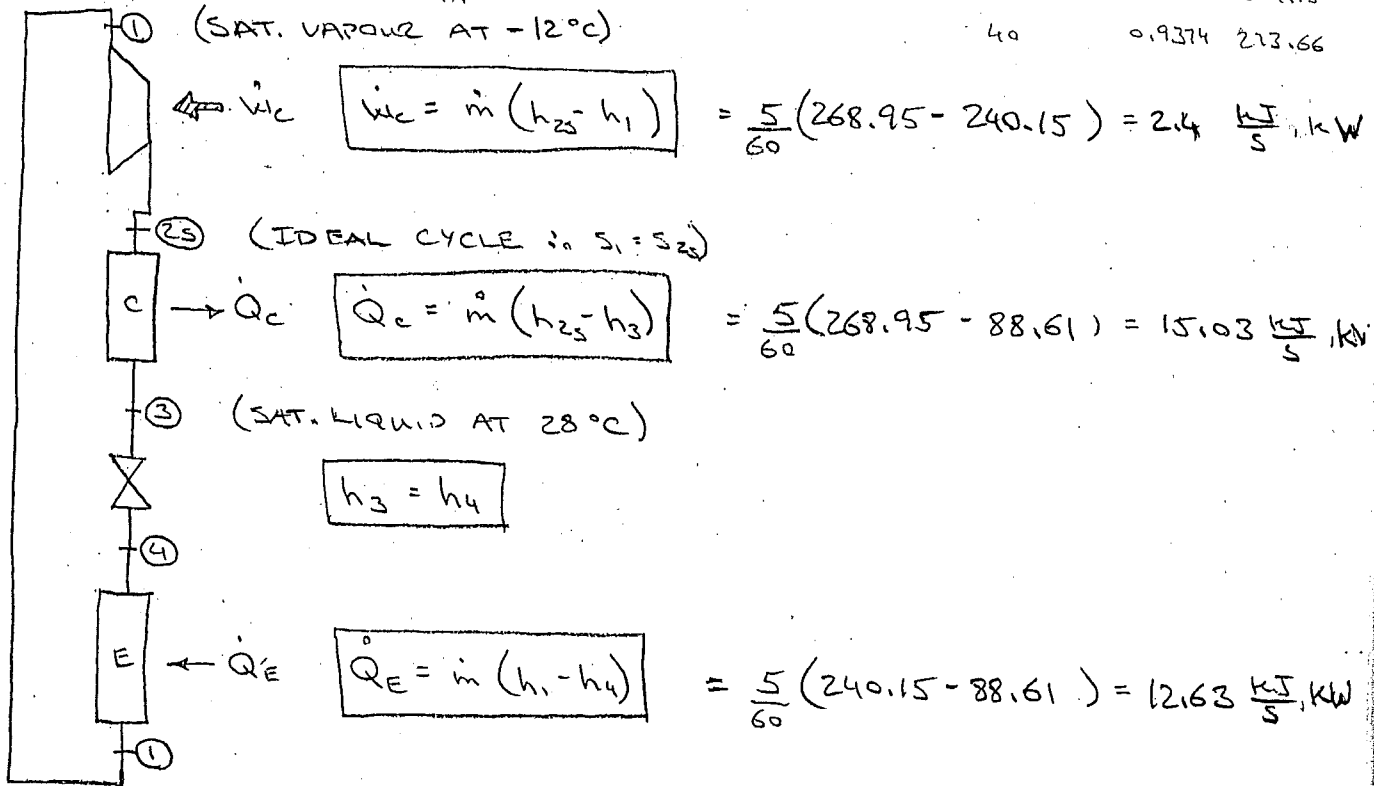 ① (SAT. VAPOUR AT -12°C)
40 0.9374 273.66
Ẇc Ẇc = ṁ (h2s - h1) = 5/60 (268.95 - 240.15) = 2.4 kJ/s, kW
②s (IDEAL CYCLE ∴ S1 = S2s)
C Q̇c Q̇c = ṁ (h2s - h3) = 5/60 (268.95 - 88.61) = 15.03 kJ/s, kW
③ (SAT. LIQUID AT 28°C)
h3 = h4
④
E Q̇E Q̇E = ṁ (h1 - h4) = 5/60 (240.15 - 88.61) = 12.63 kJ/s, kW
①